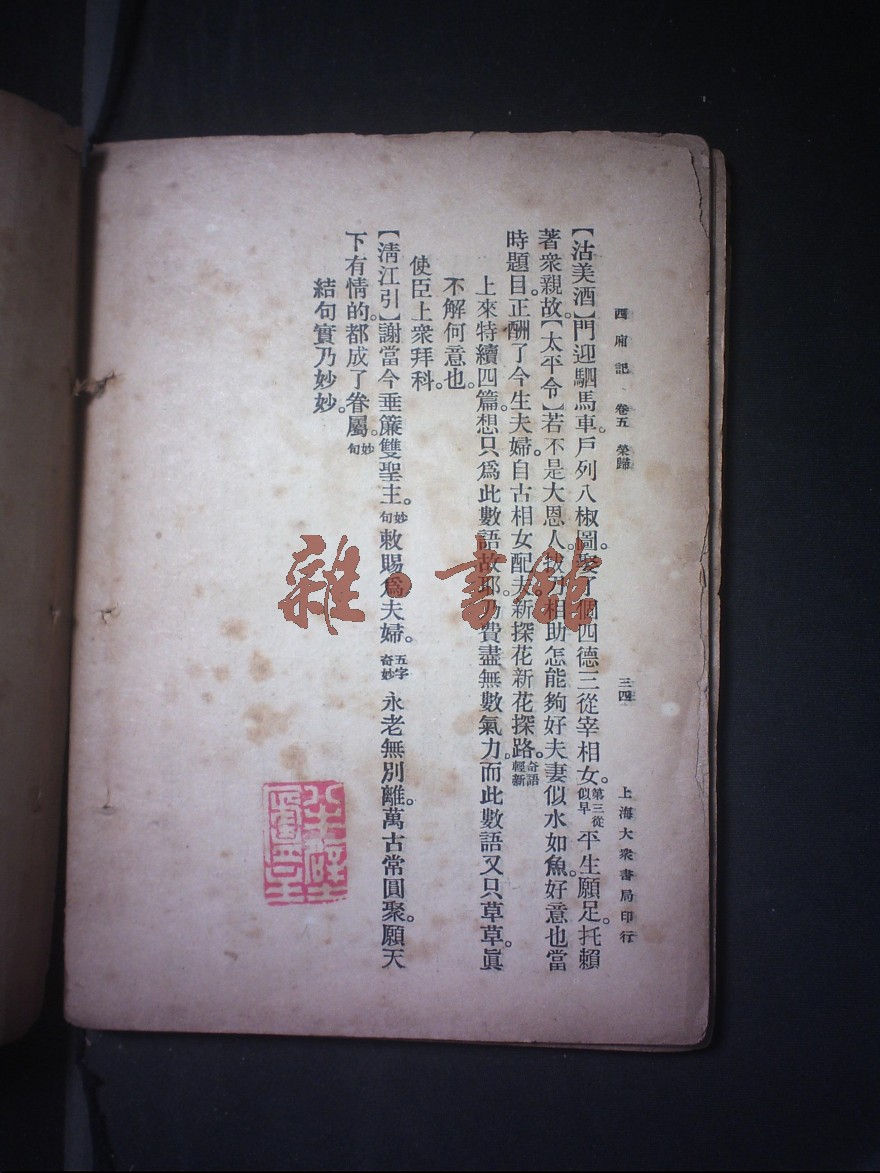 西廂記 卷五 榮歸 三四 上海大衆書局印行
【沽美酒】門迎駟馬車。戶列八椒圖。娶了個四德三從宰相女。第三從似早平生願足。托賴
著衆親故。【太平令】若不是大恩人拔刀相助。怎能夠好夫妻似水如魚。好意也當
時題目。正酬了今生夫婦。自古相女配夫。新探花新花探路。奇語輕新
上來特續四篇。想只爲此數語故耶。乃費盡無數氣力。而此數語又只草草。眞
不解何意也。
使臣上衆拜科。
【淸江引】謝當今垂簾雙聖主。妙句敕賜爲夫婦。五字奇妙永老無別離。萬古常圓聚。願天
下有情的都成了眷屬。妙句
結句實乃妙妙。
雜·書館